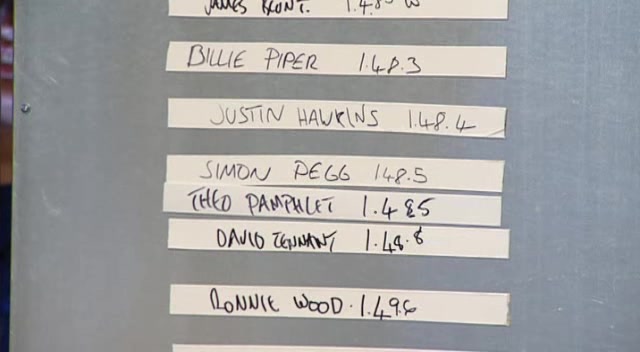 JAMES BLUNT. 1.48.3 W
BILLIE PIPER 1.48.3
JUSTIN HAWKINS 1.48.4
SIMON PEGG 148.5
THEO PAMPHLET 1.485
DAVID TENNANT 1.48.8
RONNIE WOOD. 1.49.6